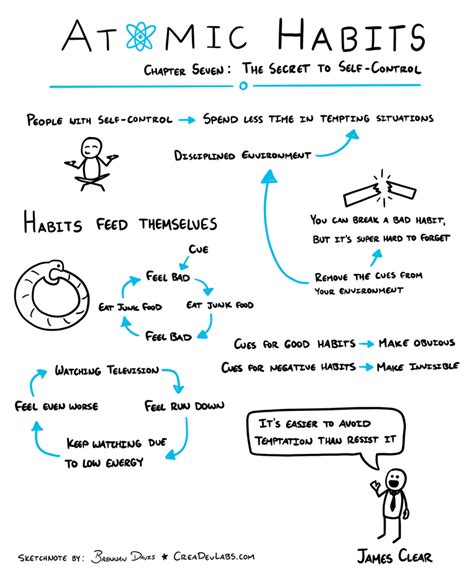 ATOMIC HABITS
CHAPTER SEVEN: THE SECRET TO SELF-CONTROL
PEOPLE WITH SELF-CONTROL → SPEND LESS TIME IN TEMPTING SITUATIONS
DISCIPLINED ENVIRONMENT
YOU CAN BREAK A BAD HABIT,
BUT IT'S SUPER HARD TO FORGET
REMOVE THE CUES FROM
YOUR ENVIRONMENT
HABITS FEED THEMSELVES
CUE
FEEL BAD
EAT JUNK FOOD
EAT JUNK FOOD
FEEL BAD
CUES FOR GOOD HABITS → MAKE OBVIOUS
CUES FOR NEGATIVE HABITS → MAKE INVISIBLE
WATCHING TELEVISION
FEEL EVEN WORSE
FEEL RUN DOWN
KEEP WATCHING DUE
TO LOW ENERGY
IT'S EASIER TO AVOID
TEMPTATION THAN RESIST IT
JAMES CLEAR
SKETCHNOTE BY: BRENNAN DAVIS ★ CREADEVLABS.COM